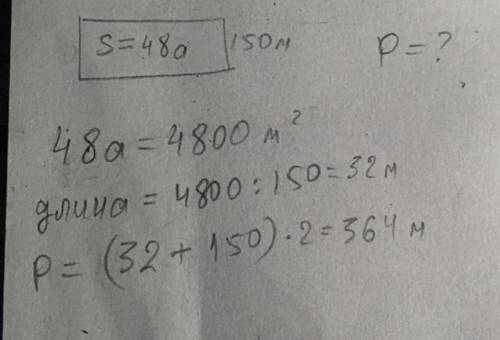 S=48а 150м P=?
48а=4800 м²
длина = 4800:150=32 м
P= (32+150)·2=364 м